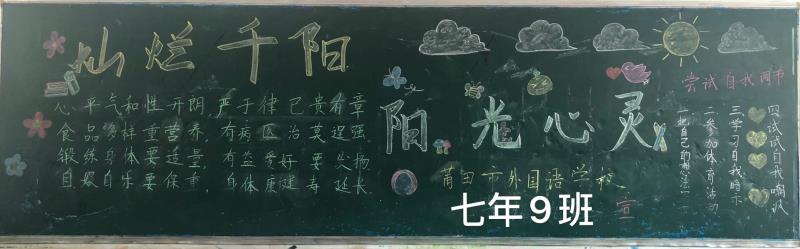 灿烂千阳
心平气和性开朗 严于律己贵有章
食品多样重营养 有病医治莫逞强
锻练身体要适量 有益爱好要发扬
自娱自乐要保重 身体康健寿延长
阳光心灵
莆田市外国语学校
宣
七年9班
尝试自我调节
一把自己的
二参加体育活动
三学习自我暗示
四试试自我嘲讽